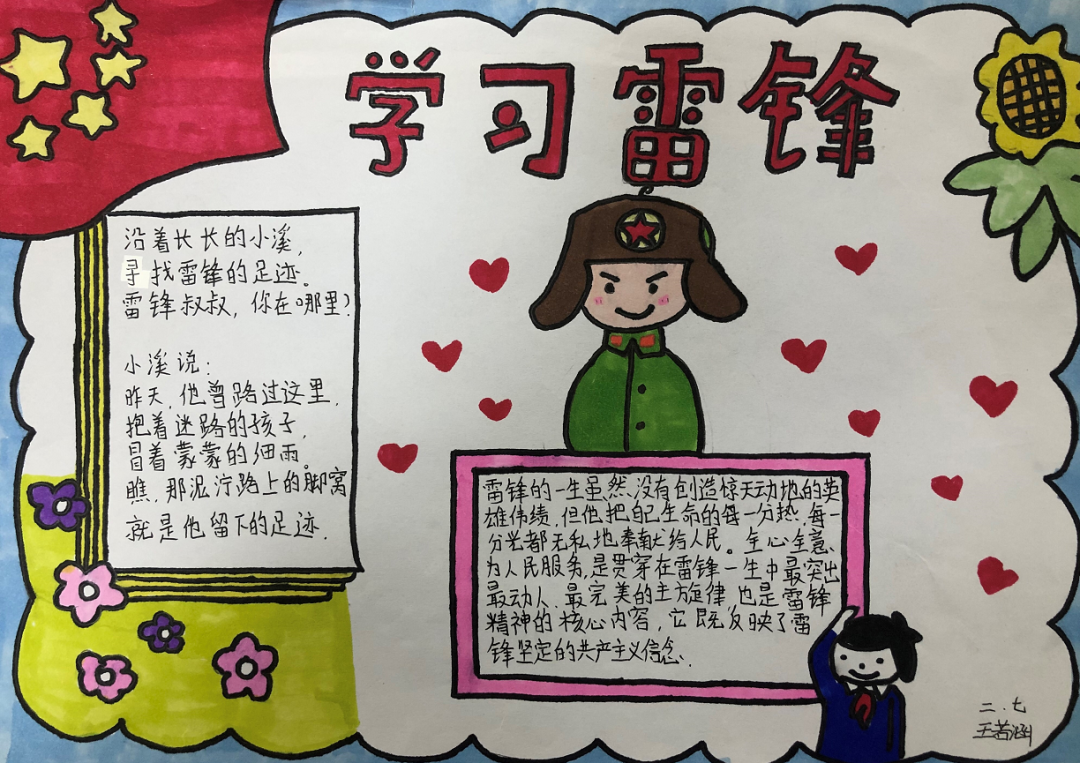 学习雷锋
沿着长长的小溪，
寻找雷锋的足迹。
雷锋叔叔，你在哪里？
小溪说：
昨天，他曾路过这里，
抱着迷路的孩子，
冒着蒙蒙的细雨。
瞧，那泥泞路上的脚窝
就是他留下的足迹．
雷锋的一生虽然没有创造惊天动地的英
雄伟绩，但他把自己生命的每一分热，每一
分光都无私地奉献给人民。全心全意、
为人民服务，是贯穿在雷锋一生中最突出
最动人、最完美的主旋律，也是雷锋
精神的核心内容，它既反映了雷
锋坚定的共产主义信念．
二．七
王若涵